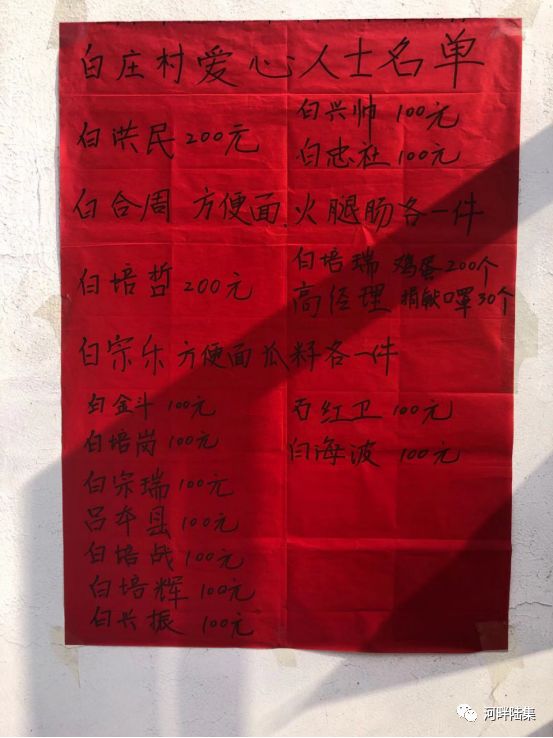 白庄村爱心人士名单
白洪民 200元
白兴帅 100元
白忠社 100元
白合周 方便面.火腿肠各一件
白培哲 200元
白培瑞 鸡蛋200个
高经理 捐献口罩30个
白宗乐 方便面瓜籽各一件
白金斗 100元
白培岗 100元
白宗瑞 100元
吕本县 100元
白培战 100元
白培辉 100元
白兴振 100元
石红卫 100元
白海波 100元
河畔陆集